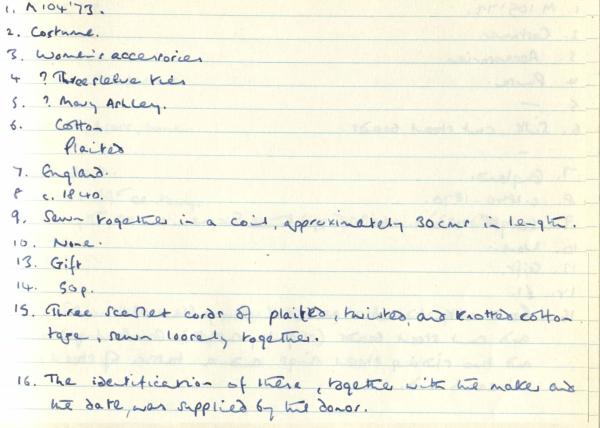 1. A104'73.
2. Costume.
3. Women's accessories
4 ? Three sleeve ties
5. ? Mary Ashley.
6. Cotton
Plaited
7. England.
8 c. 1840.
9. Sewn together in a coil, approximately 30cms in length.
10. None.
13. Gift
14. 50p.
15. Three scarlet cords of plaited, twisted, and knotted cotton
tape, sewn loosely together.
16. The identification of these, together with the maker and
the date, was supplied by the donor.